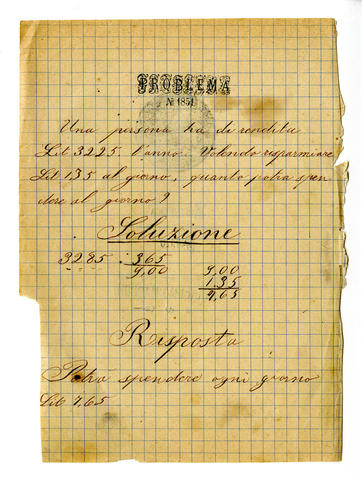 PROBLEMA
Nº 1851
Una persona ha di rendita
Lit 3225 l'anno. Volendo risparmiare
Lit 1,35 al giorno, quanto potrà spen
dere al giorno?
Soluzione
3285 : 365
9,00 9,00
1,35
7,65
Risposta
Potrà spendere ogni giorno
Lit 7,65